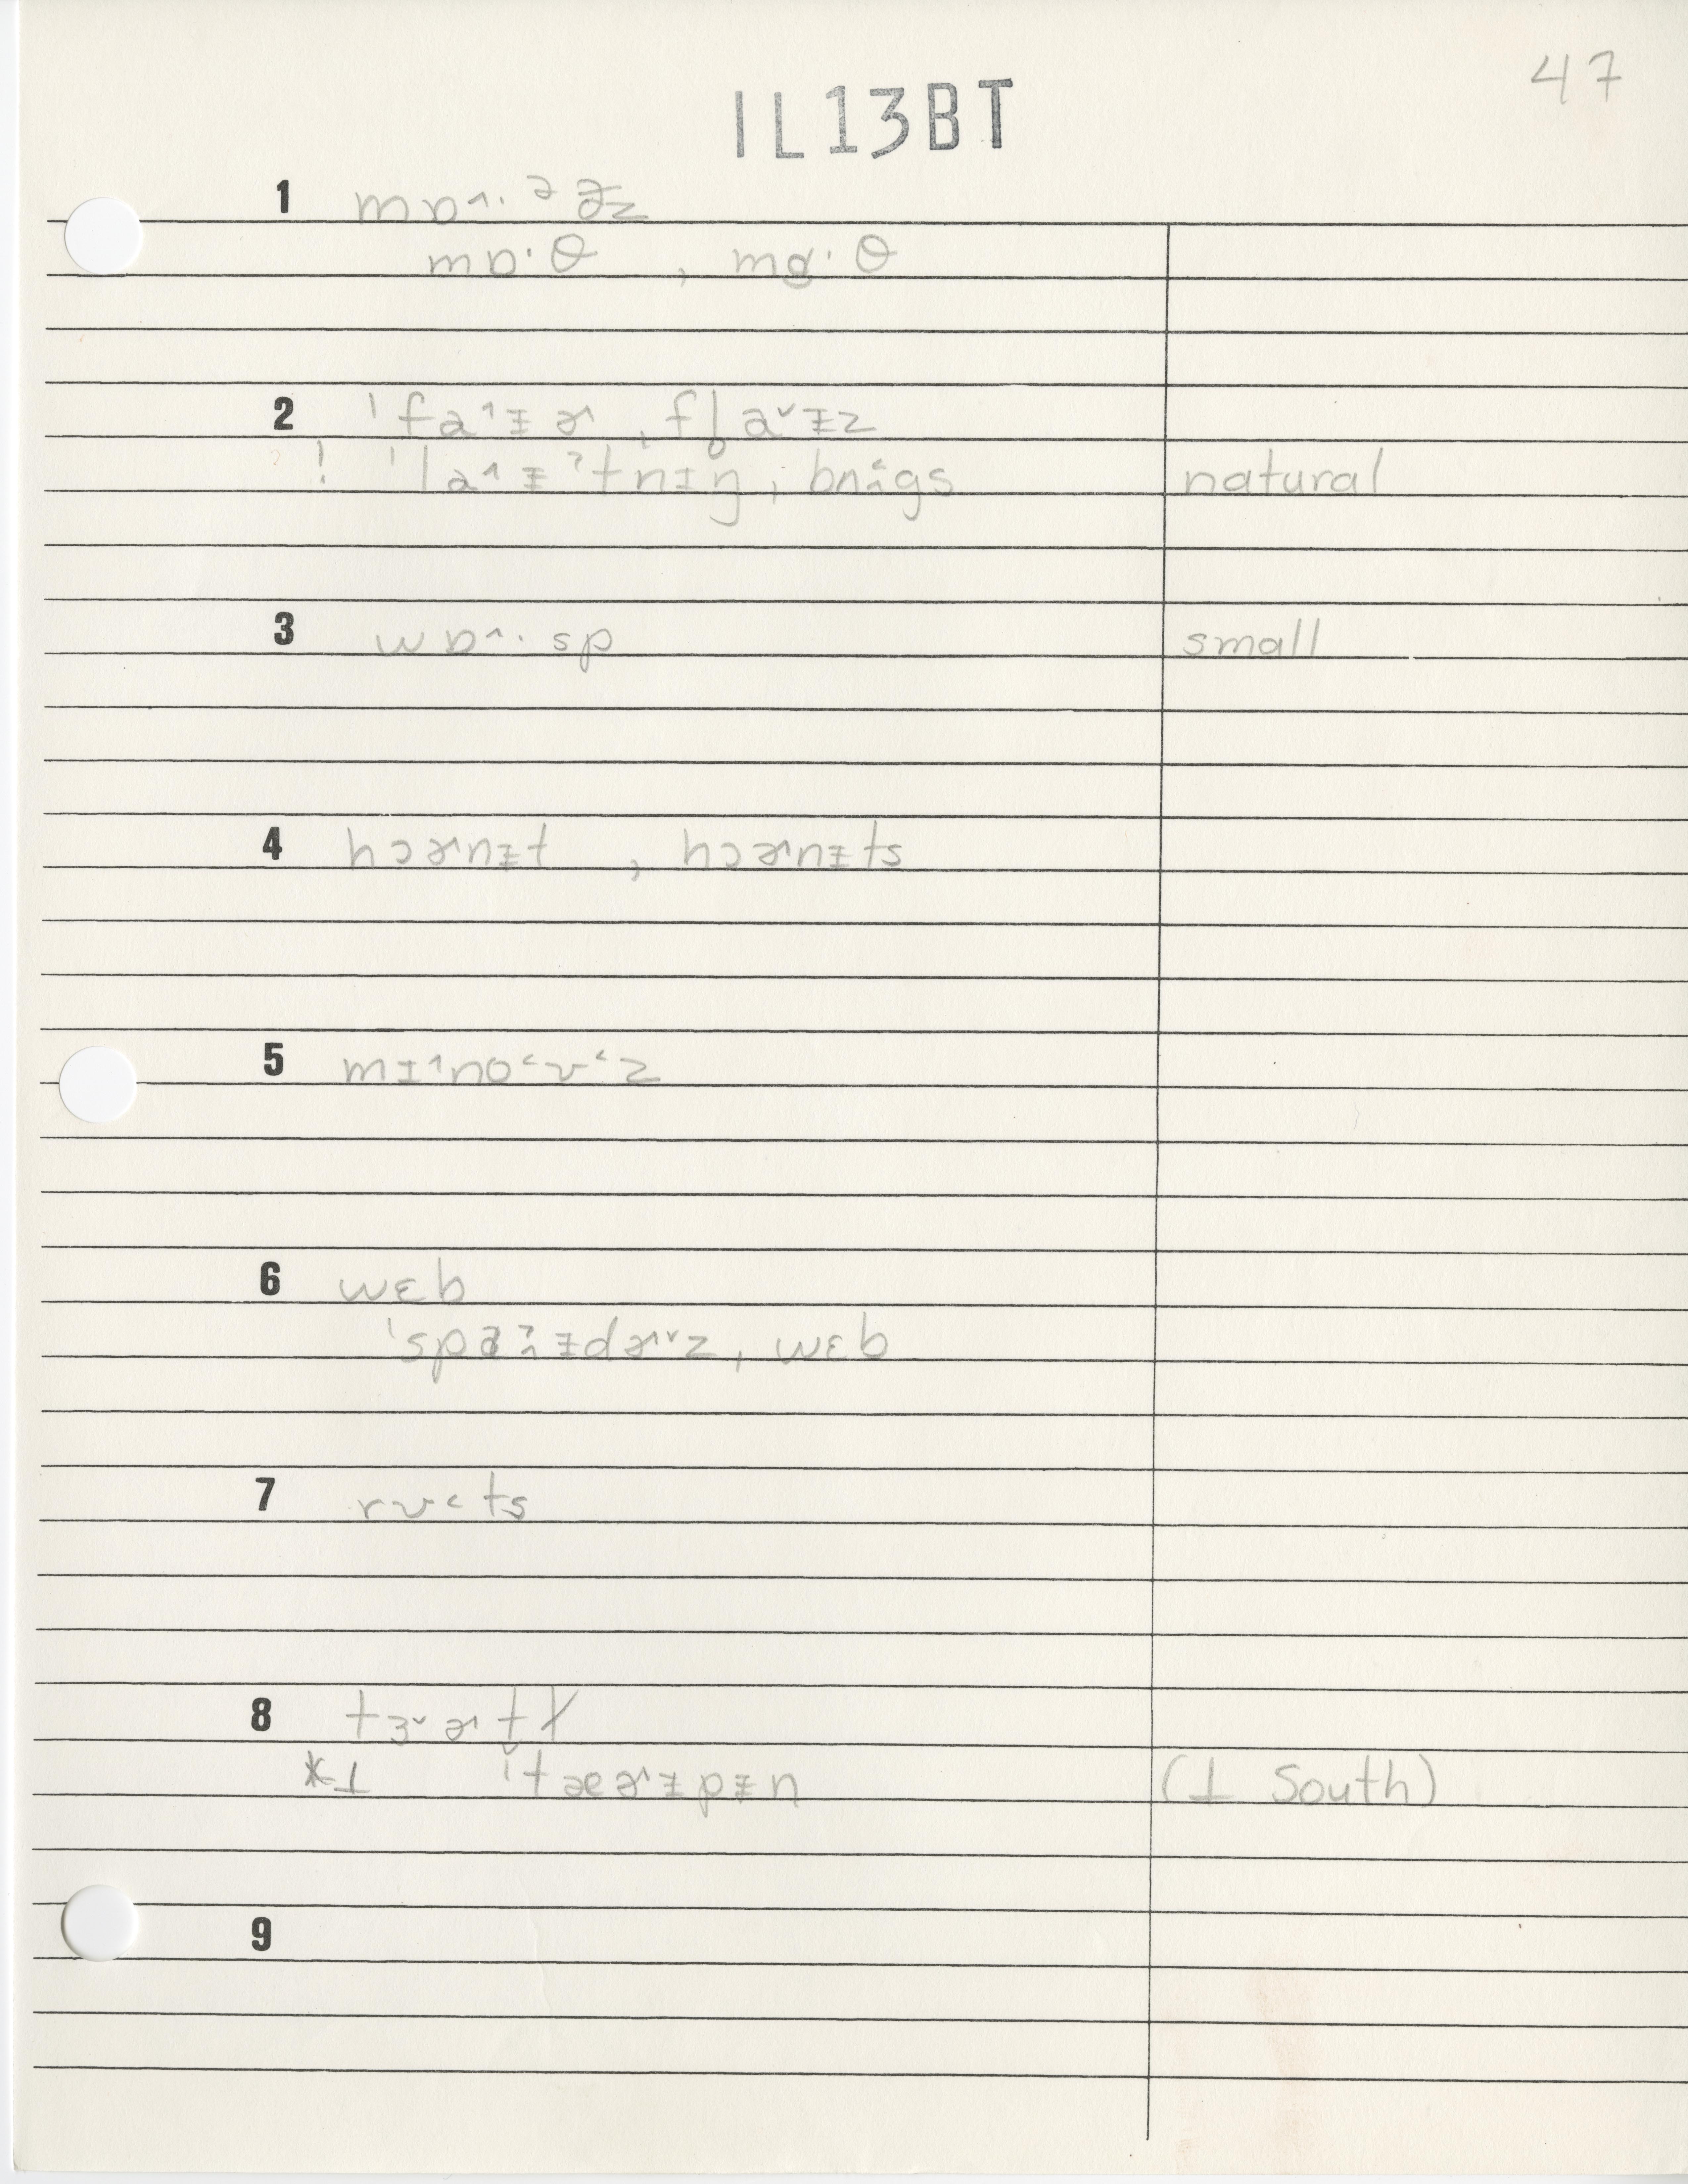 47
IL13BT
1 mɒ˄·ᶻðz
mɒ·θ , mɒ̣·θ
2 ˈfa˄ɪɚ , fl̥a˅ɪz
! ˈla˄ɪˀtnɪŋ , bʌgs natural
3 wɒ˄·sp small
4 hɔɚnɪt , hɔɚnɪts
5 mɪ˄no˂ʊ˂z
6 wɛb
ˈspaɪdɚ˅z , wɛb
7 rʊ˂ts
8 tɜ˅ɚtl
*⊥ tæɚɪpɪn (⊥ South)
9